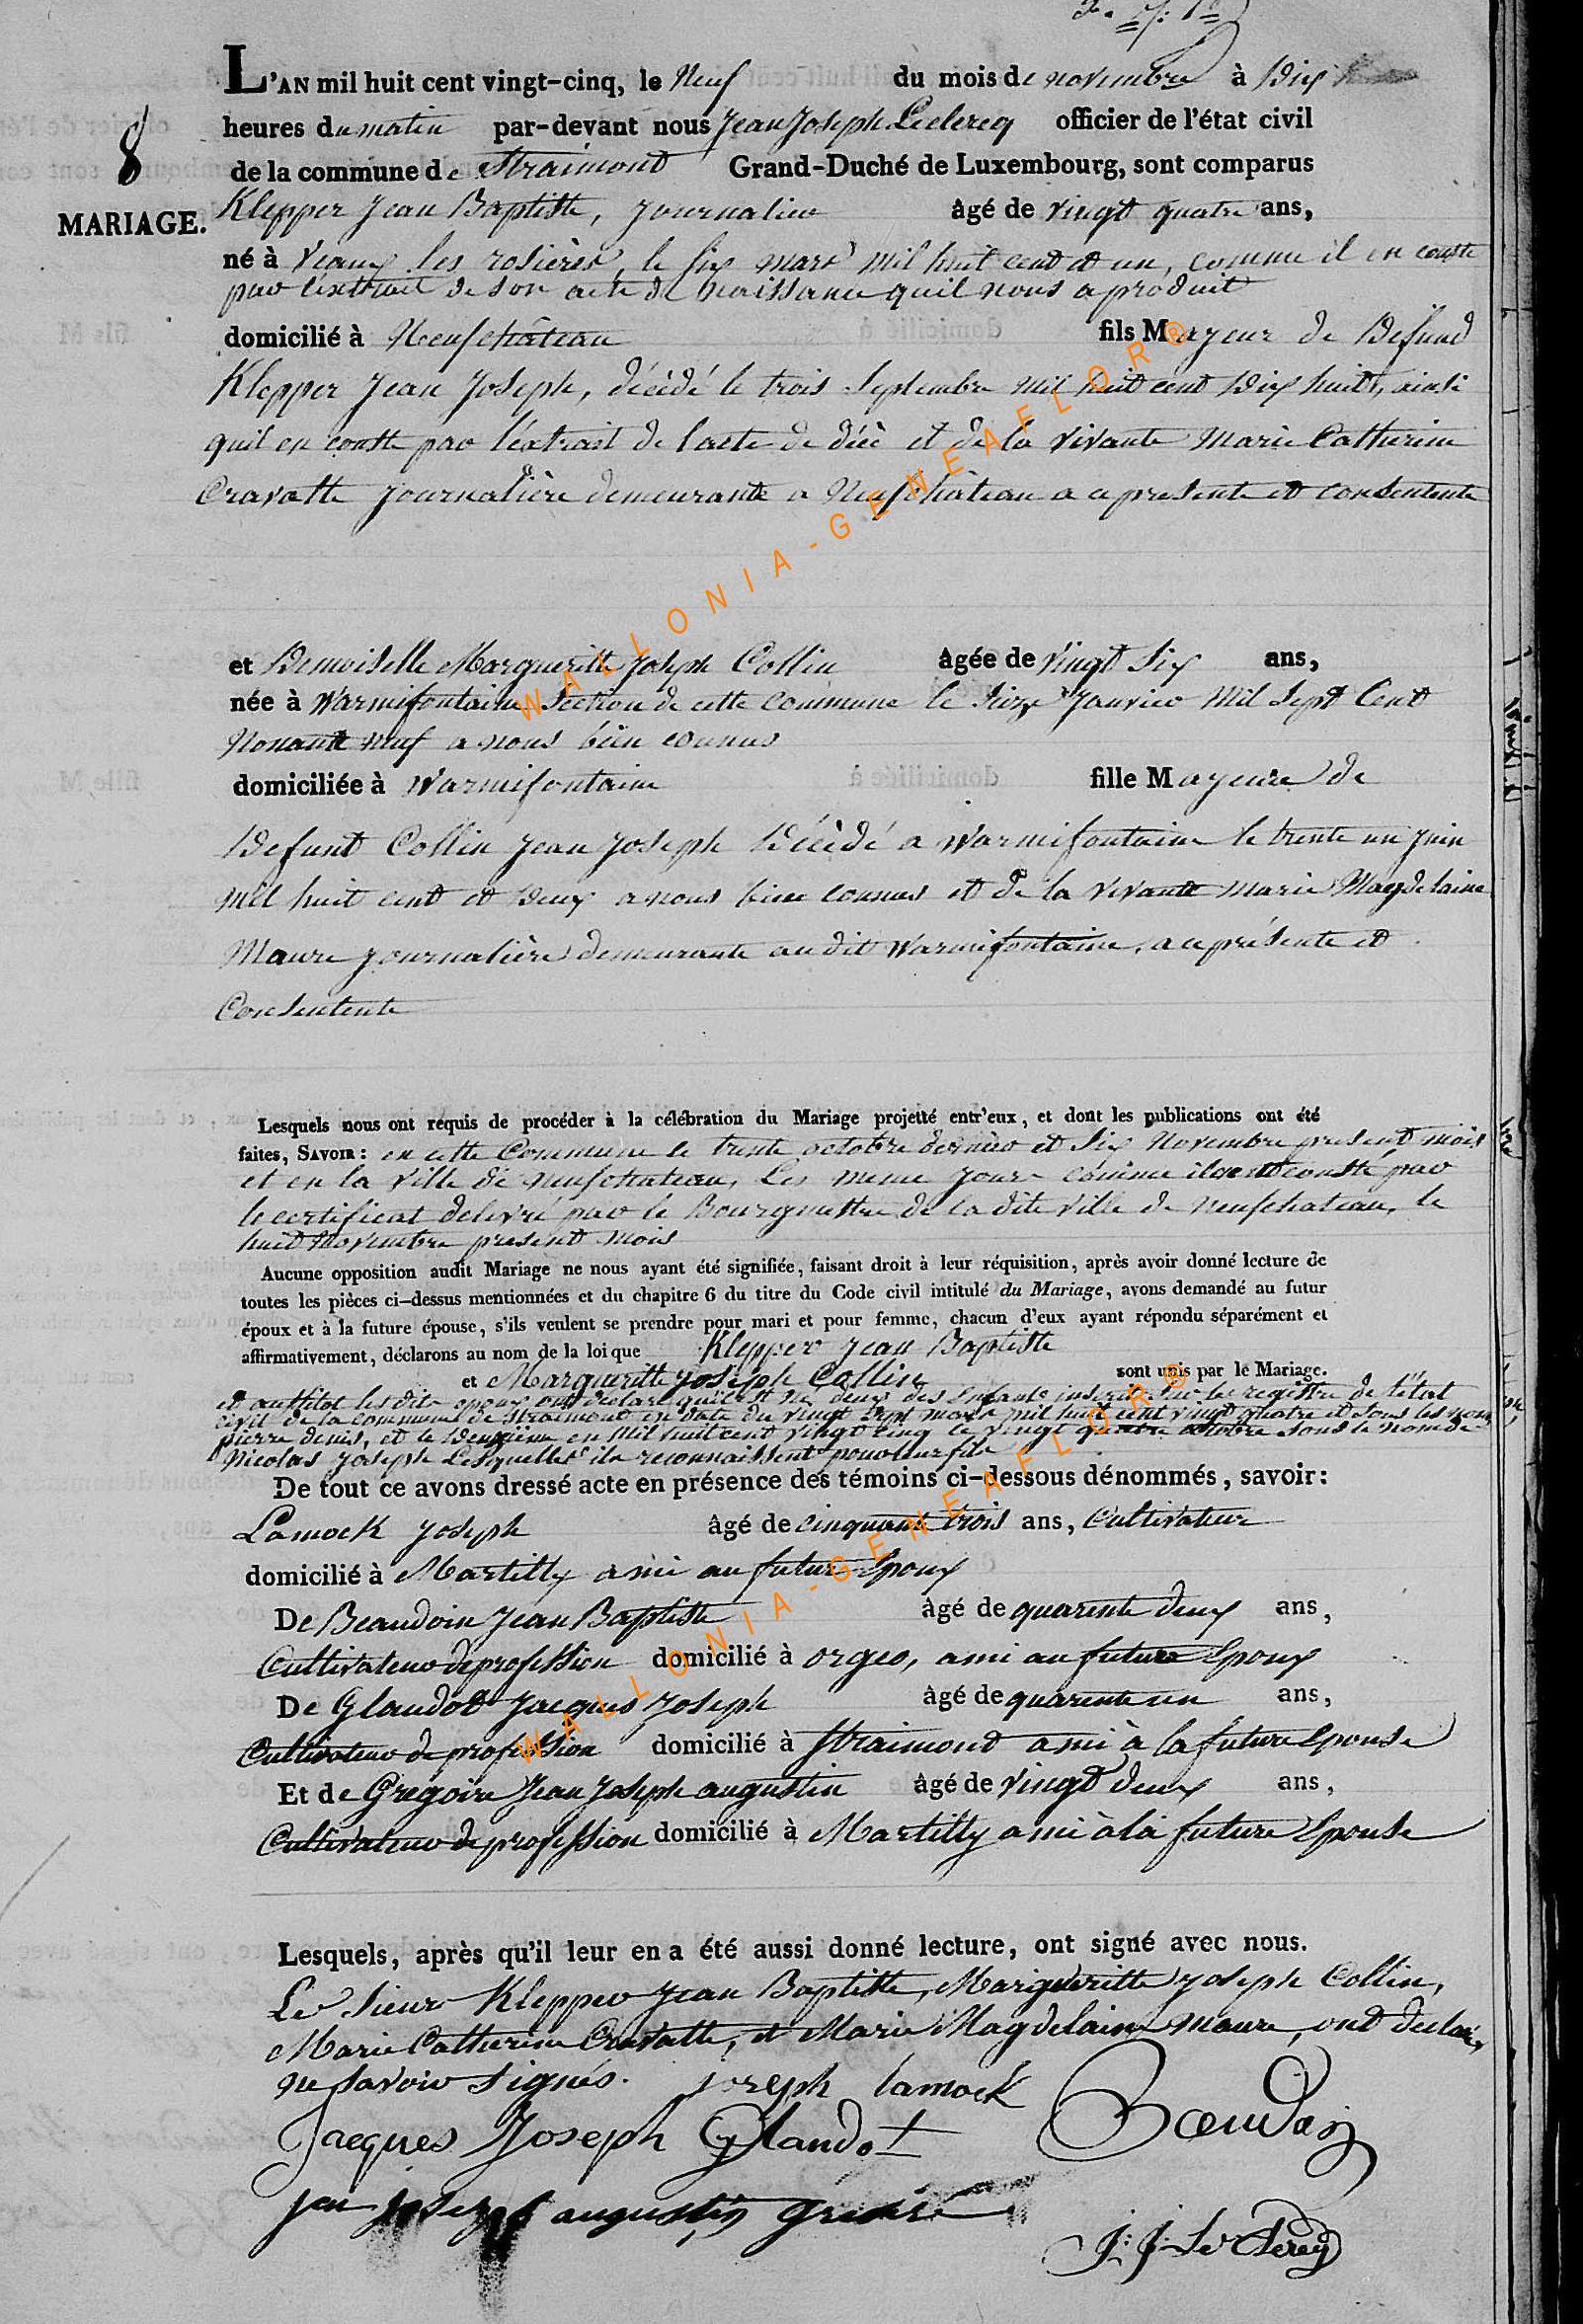 L'AN mil huit cent vingt-cinq, le Neuf du mois de novembre à Dix
heures du matin par-devant nous Jean Joseph Leclercq officier de l'état civil
8
de la commune de Straimont Grand-Duché de Luxembourg, sont comparus
MARIAGE.
Klepper Jean Baptiste, journalier âgé de vingt quatre ans,
né à Veaux les rosières, le six mars mil huit cent et un, comme il en conste
par l'extrait de son acte de naissance quil nous a produit
domicilié à Neufchâteau fils Mayeur de Defund
Klepper Jean Joseph, décédé le trois Septembre mil huit cent Dix huit, ainsi
quil en conste par l'extrait de l'acte de décè et de la vivante Marie Catherine
Cravatte journalière demeurante a Neufchâteau a ce presente et consentente
et Demoiselle Margueritte Joseph Collin âgée de vingt Six ans,
née à Warmifontaine Section de cette Commune le Seize Janvier Mil Sept Cent
Nonante neuf a nous bien connus
domiciliée à Warmifontaine fille Mayeure de
Defunt Collin Jean Joseph Décèdé a Warmifontaine le trente un juin
mil huit cent et Deux a nous bien connus et de la vivante Marie Magdelaine
Maure journalière demeurante audit Warmifontaine, a ce présente et
Consentente
Lesquels nous ont requis de procéder à la célébration du Mariage projetté entr'eux, et dont les publications ont été
faites, SAVOIR: en cette Commune le trente octobre dernier et Six Novembre present mois
et en la ville de neufchateau, Les meme jour comme il en conste par
le certificat delivré par le Bourgmettre de la dite ville de neufchateau, le
huit Novembre present mois
Aucune opposition audit Mariage ne nous ayant été signifiée, faisant droit à leur réquisition, après avoir donné lecture de
toutes les pièces ci-dessus mentionnées et du chapitre 6 du titre du Code civil intitulé du Mariage, avons demandé au futur
époux et à la future épouse, s'ils veulent se prendre pour mari et pour femme, chacun d'eux ayant répondu séparément et
affirmativement, déclarons au nom de la loi que Klepper Jean Baptiste
et Margueritte Joseph Collin sont unis par le Mariage.
et aussitot les dits epoux ont déclaré qu'il est né deux des Enfants inscrit sur le registre de l'état
civil de la commune de Straimont en date du vingt sept mars mil huit cent vingt quatre et sous les nom
pierre denis, et le Deuxième en mil huit cent vingt cinq le vingt quatre octobre sous le nom de
Nicolas Joseph Lesquelles ils reconnaissent pour leur fils
De tout ce avons dressé acte en présence des témoins ci-dessous dénommés, savoir:
Lamock Joseph âgé de cinquante trois ans, Cultivateur
domicilié à Martilly ami au futur Epoux
De Beaudoin Jean Baptiste âgé de quarente deux ans,
Cultivateur de profession domicilié à orgeo, ami au future Epoux
De Glaudot Jacques Joseph âgé de quarente un ans,
Cultivateur de profession domicilié à Straimont ami à la future Epouse
Et de Gregoire Jean Joseph augustin âgé de vingt deux ans,
Cultivateur de profession domicilié à Martilly ami à la future Epouse
Lesquels, après qu'il leur en a été aussi donné lecture, ont signé avec nous.
Le Sieur Klepper Jean Baptiste, Margueritte Joseph Collin,
Marie Catherine Cravatte, et Marie Magdelaine Maure, ont declaré
ne savoir signés. joseph lamock
Jacques Joseph Glaudot Baudoin
jean joseph augustin
J: J: Leclercq
WALLONIA-GENEAFLOR®
WALLONIA-GENEAFLOR®